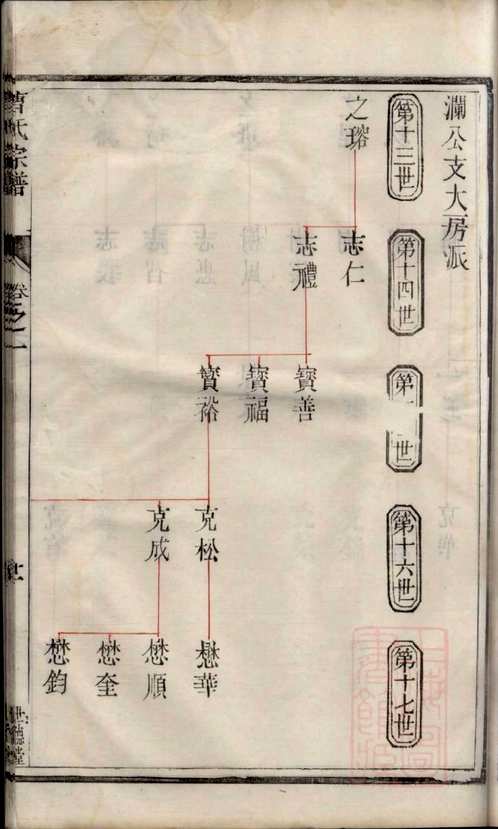 瀾公支大房派
第十三世
第十四世
第
世
第十六世
第十七世
之瑢
志仁
志禮
寳善
寳福
寳裕
克松
克成
懋華
懋順
懋奎
懋鈞
氏宗譜
卷之一